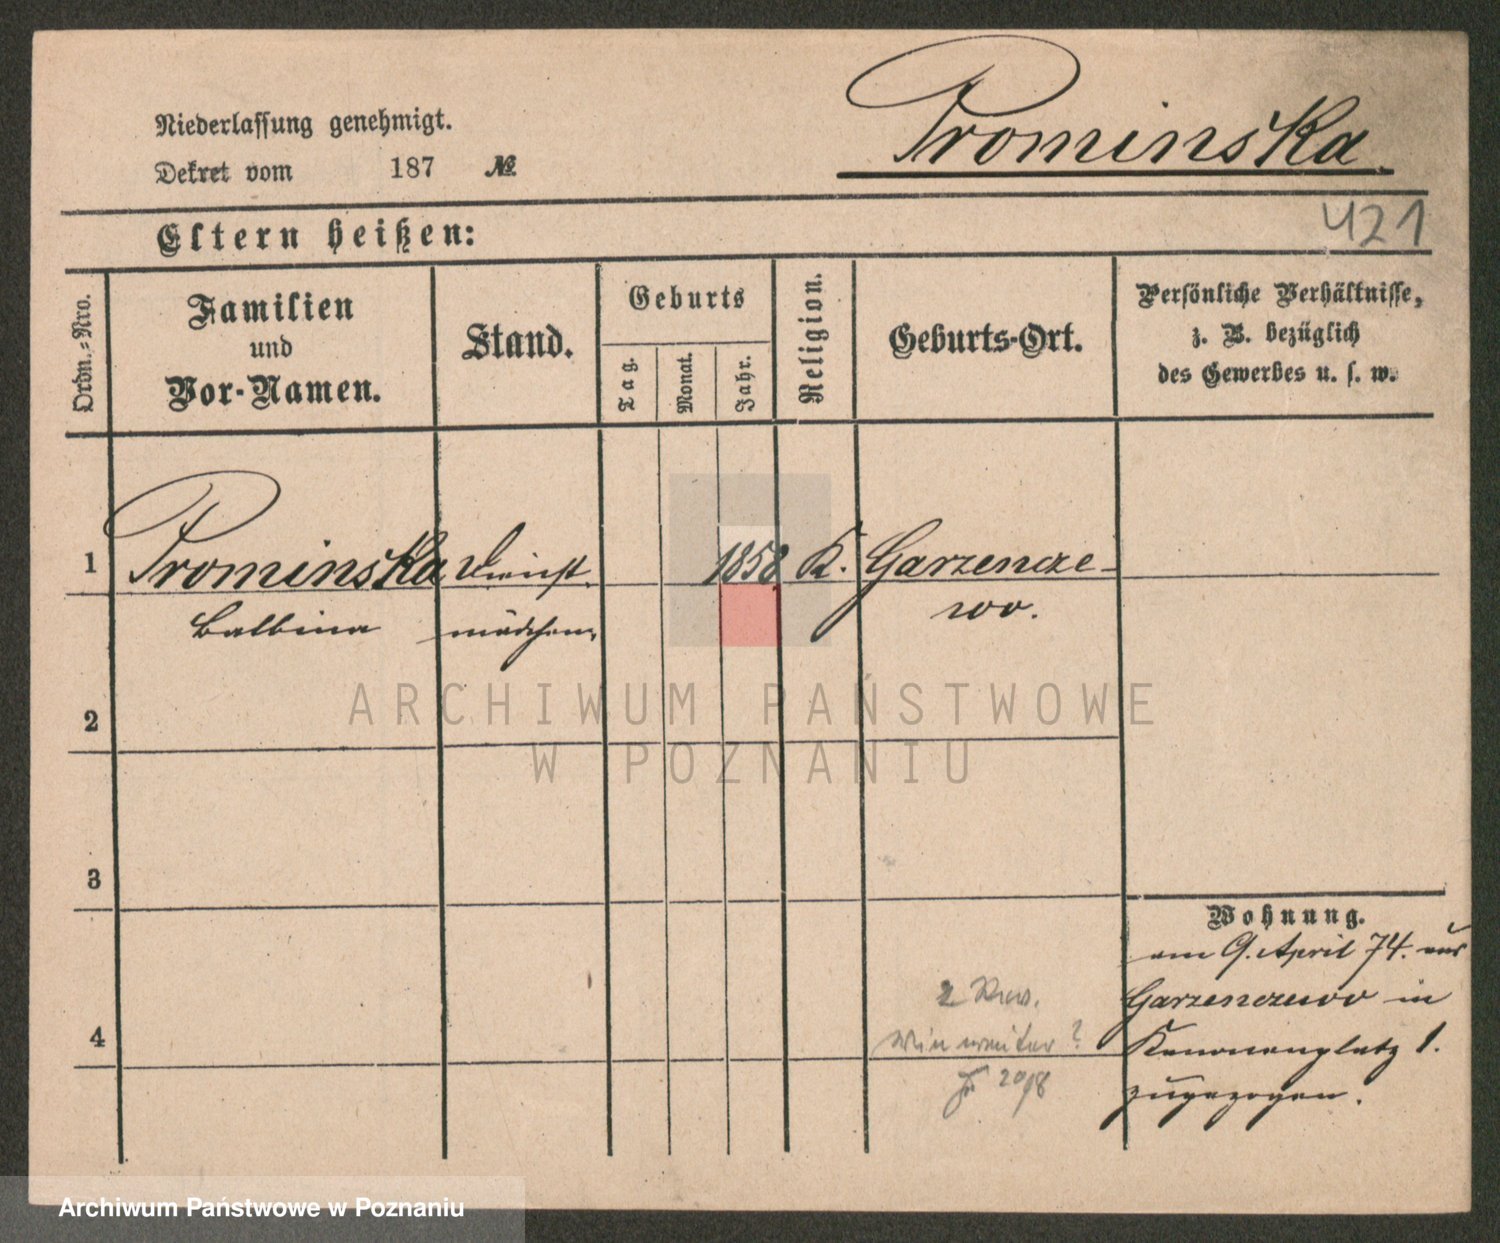 Prominska
Niederlassung genehmigt.
Dekret vom 187 №
421
Eltern heißen:
Ordn.-Nro.
Familien
und
Vor-Namen.
Stand.
Geburts
Tag.
Monat.
Jahr.
Religion.
Geburts-Ort.
Persönliche Verhältnisse,
z. B. bezüglich
des Gewerbes u. s. w.
1 Prominska Dienst- 1858 K. Garzencze-
Balbina mädchen wo.
ARCHIWUM PAŃSTWOWE
W POZNANIU
2
3
4
Wohnung.
am 9. April 74. aus
Garzenczewo in
Kanonenplatz 1.
zugezogen.
2
weiter?
20/8
Archiwum Państwowe w Poznaniu